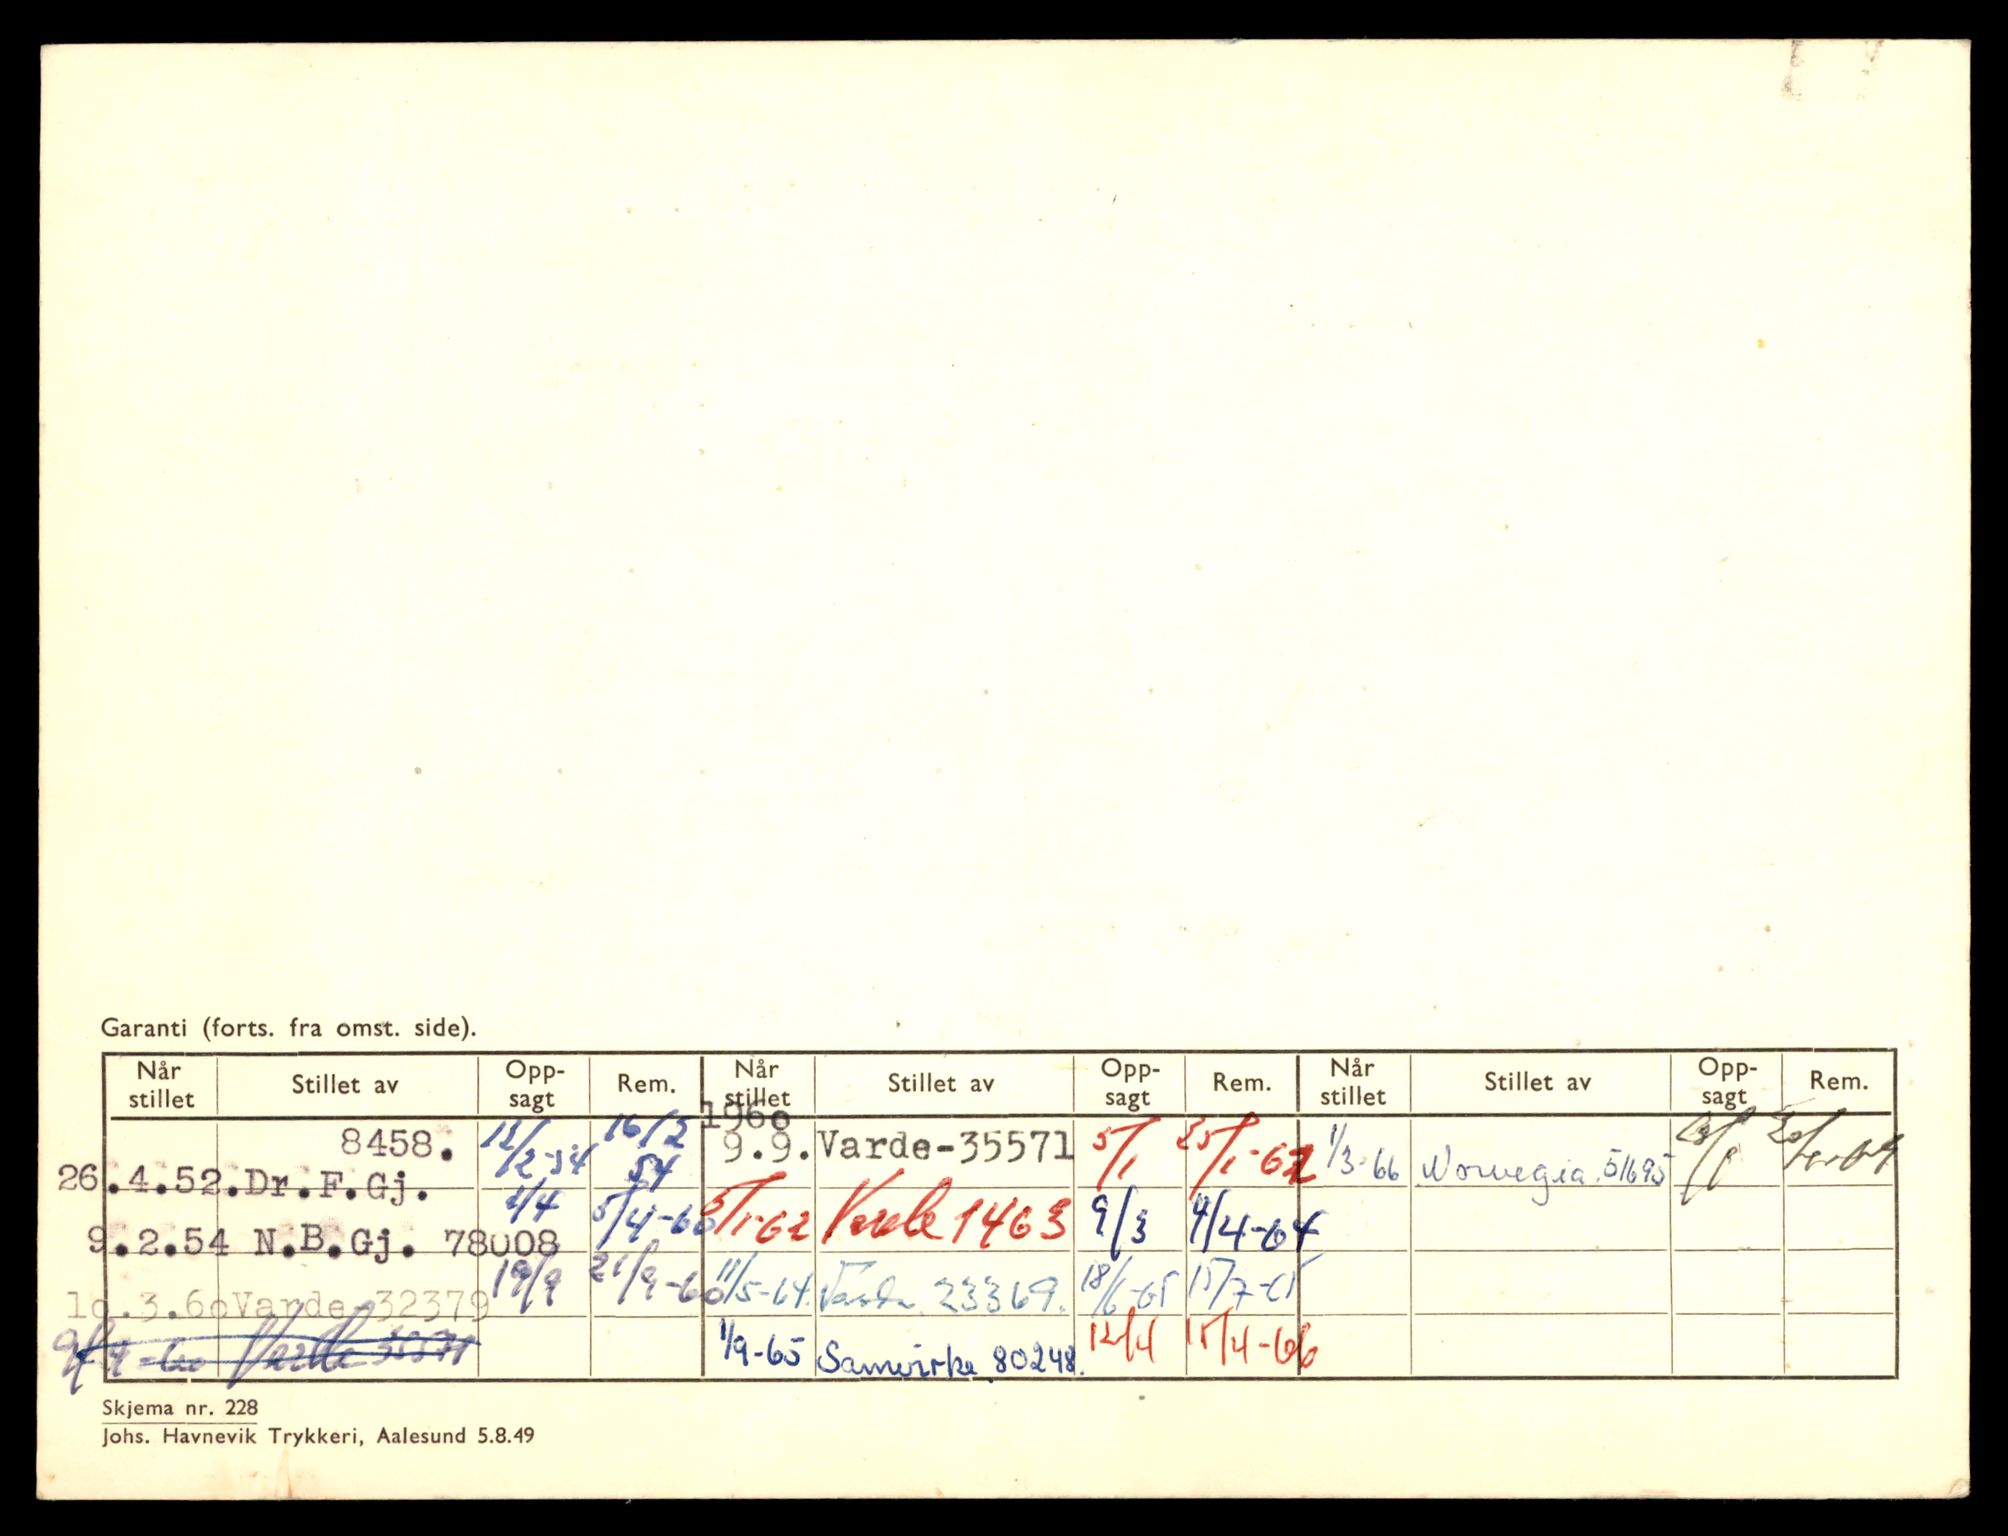 Garanti (forts. fra omst. side).
Når stillet Stillet av Opp-sagt Rem. Når stillet Stillet av Opp-sagt Rem. Når stillet Stillet av Opp-sagt Rem.
8458.
26.4.52.Dr.F.Gj. 12/2-54 16/2 54
9.2.54 N.B.Gj. 78008 1/4 5/4-60
10.3.60 Varde 32379 19/9 21/9-60
9/9-60 Varde 35571
1960
9.9. Varde-35571 5/1 25/1-62
5/1-62 Varde 1463 9/3 4/4-64
11/5-64. Varde 23369. 18/6-65 15/7-65
1/9-65 Samvirke 80248. 12/4 15/4-66
1/3-66 Norvegia. 511695
Skjema nr. 228
Johs. Havnevik Trykkeri, Aalesund 5.8.49